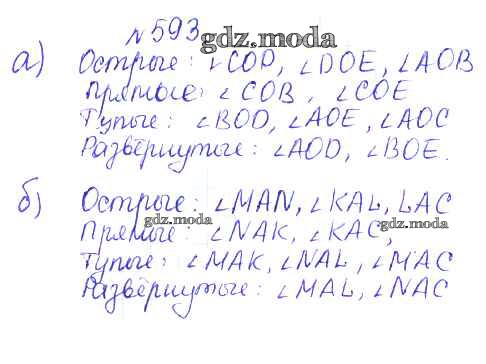 №593
gdz.moda
а) Острые: ∠COD, ∠DOE, ∠AOB
Прямые: ∠COB, ∠COE
Тупые: ∠BOD, ∠AOE, ∠AOC
Развёрнутые: ∠AOD, ∠BOE.
б) Острые: ∠MAN, ∠KAL, LAC
gdz.moda gdz.moda
Прямые: ∠NAK, ∠KAC,
Тупые: ∠MAK, ∠NAL, ∠MAC
gdz.moda
Развёрнутые: ∠MAL, ∠NAC